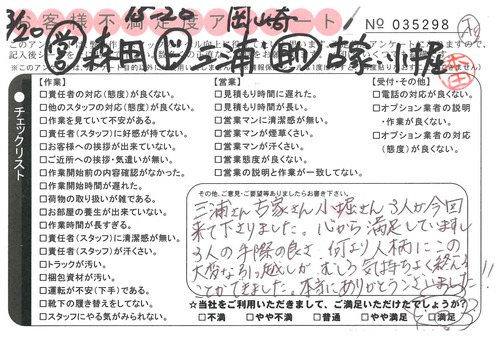 お客様不満足度アンケート
3/20 15-20 岡崎 No 035298
営 森田 三浦 助 古家 小堀
チェックリスト
【作業】
□責任者の対応(態度)が良くない。
□他のスタッフの対応(態度)が良くない。
□作業を見ていて不安がある。
□責任者(スタッフ)に好感が持てない。
□お客様への挨拶が出来ていない。
□ご近所への挨拶・気遣いが無い。
□作業開始前の内容確認がなかった。
□作業開始時間が遅れた。
□荷物の取り扱いが雑である。
□お部屋の養生が出来ていない。
□作業時間が長すぎる。
□責任者(スタッフ)に清潔感が無い。
□責任者(スタッフ)が汗くさい。
□トラックが汚い。
□梱包資材が汚い。
□運転が不安(下手)である。
□靴下の履き替えをしてない。
□スタッフにやる気がみられない。
【営業】
□見積もり時間に遅れた。
□見積もり時間が長い。
□営業マンに清潔感が無い。
□営業マンが煙草くさい。
□営業マンが汗くさい。
□営業態度が良くない。
□営業の説明と作業が一致してない。
【受付・その他】
□電話の対応が良くない。
□オプション業者の説明
・作業が良くない。
□オプション業者の対応
(態度)が良くない。
その他、ご意見・ご要望等ありましたらお書き下さい。
三浦さん古家さん小堀さん3人が今回
来て下さりました。心から満足しています。
3人の手際の良さ、何より人柄にこの
大変な引っ越しが、むしろ気持ちよく終える
ことができました。本当にありがとうございました!!
☆当社をご利用いただきまして、ご満足いただけたでしょうか?
□不満 □やや不満 □普通 □やや満足 □満足